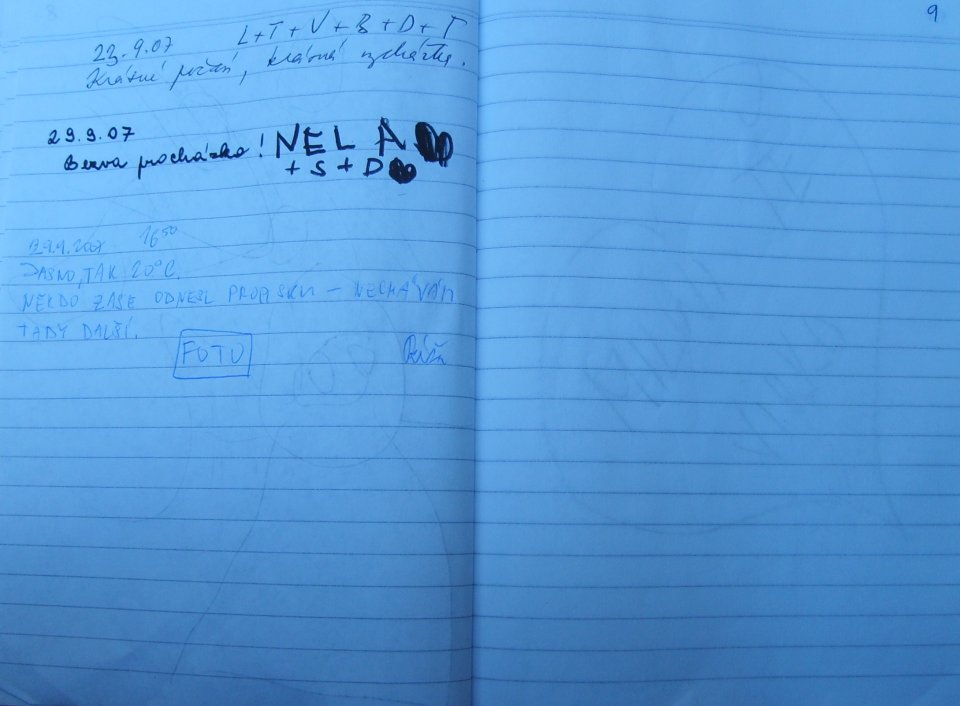 8
9
23.9.07 L+T+V+B+D+T
Krásné počasí, krásná vycházka.
29.9.07
Bezva procházka! NELA
+ S + D
29.9.2007 16:50
JASNO, TAK 20°C.
NĚKDO ZASE ODNESL PROPISKU – NECHÁVÁM
TADY DALŠÍ.
FOTO